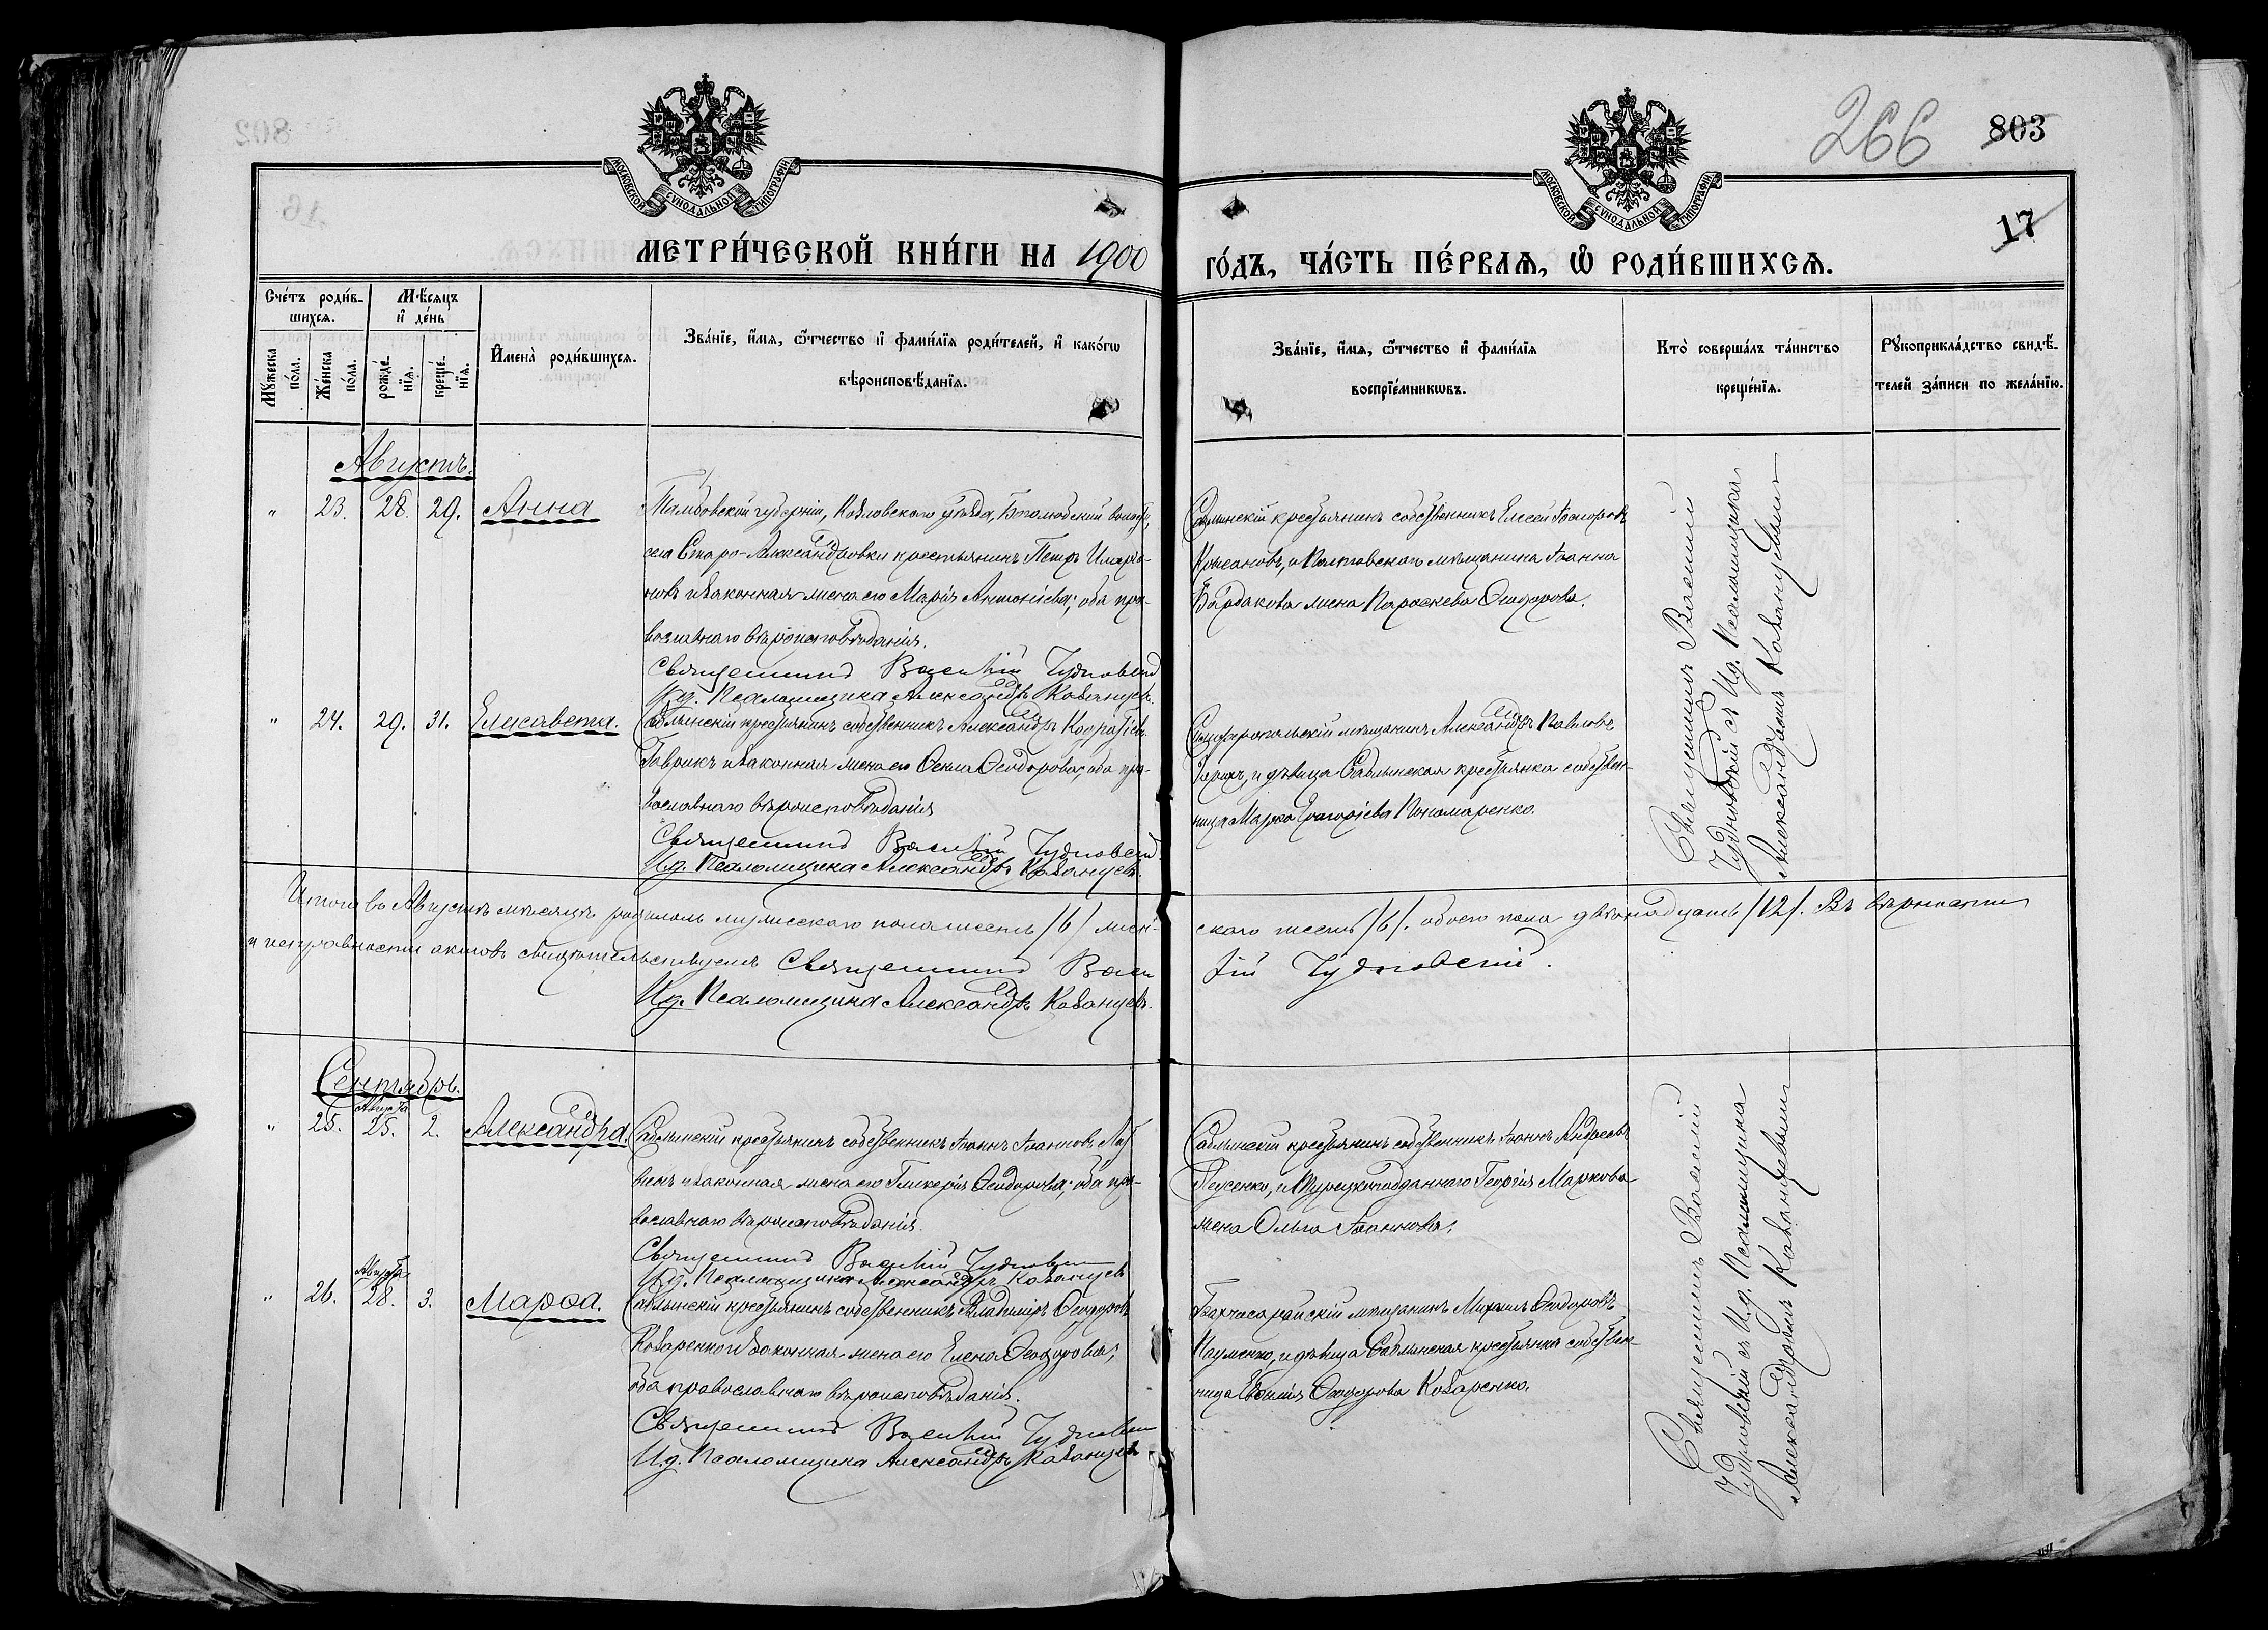 266 803
17
МОСКОВСКОЙ СѴНОДАЛЬНОЙ ТИПОГРАФІИ
МОСКОВСКОЙ СѴНОДАЛЬНОЙ ТИПОГРАФІИ
МЕТРИ́ЧЕСКОЙ КНИ́ГИ НА 1900
ГО́ДЪ, ЧА́СТЬ ПЕ́РВАѦ, Ѡ҆ РОДИ́ВШИХСѦ.
Сче́тъ роди́в-
шихсѧ.
Мꙋ́жеска по́ла.
Же́нска по́ла.
Мѣ́сѧцъ
и҆ де́нь
рожде́нїѧ.
креще́нїѧ.
И҆мена̀ роди́вшихсѧ.
Зва́нїе, и҆́мѧ, ѻ҆́тчество и҆ фами́лїѧ роди́телей, и҆ како́гѡ
вѣроисповѣ́данїѧ.
Зва́нїе, и҆́мѧ, ѻ҆́тчество и҆ фами́лїѧ
воспрїе́мникѡвъ.
Кто̀ соверша́лъ та́инство
креще́нїѧ.
Рꙋкоприкла́дство свидѣ́-
телей за́писи по жела́нїю.
Августъ.
" 23. 28. 29. Анна
Тамбовской губерніи, Козловскаго уѣзда, Боголюбской волости,
села Старо-Александровки крестьянинъ Петръ Иларіо-
новъ и законная жена его Марія Антоніева; оба пра-
вославнаго вѣроисповѣданія.
Священникъ Василій Чудновскій
И.д. Псаломщика Александръ Казанцевъ.
Саблынскій крестьянинъ собственникъ Елисей
и Полтавскаго мѣщанина Іоанна
Бардакова жена Параскева Ѳеодорова.
Священникъ Василій
Чудновскій съ И.д. Псаломщика
Александромъ Казанцевымъ
" 24. 29. 31. Елисавета.
Саблынскій крестьянинъ собственникъ Александръ Кодратіевъ
Гаврикъ и законная жена его Ѳекла Ѳеодорова; оба пра-
вославнаго вѣроисповѣданія
Священникъ Василій Чудновскій
И.д. Псаломщика Александръ Казанцевъ.
Симферопольскій мѣщанинъ Александръ Павловъ
и дѣвица Саблынская крестьянка собствен-
ница Марѳа Григоріева Пономаренко.
Итого въ Августѣ мѣсяцѣ родилось мужескаго пола шесть /6/ жен-
скаго шесть /6/. обоего пола двѣнадцать /12/. Въ вѣрности
и исправности актовъ свидѣтельствуемъ Священникъ Васи
лій Чудновскій.
И.д. Псаломщика Александръ Казанцевъ.
Сентябрь.
" 25. Августа 25. 2. Александра.
Саблынскій крестьянинъ собственникъ Іоаннъ Іоанновъ
и законная жена его Гликерія Ѳеодорова; оба пра-
вославнаго вѣроисповѣданія.
Священникъ Василій Чудновскій
И.д. Псаломщика Александръ Казанцевъ
Саблынскій крестьянинъ собственникъ Іоаннъ Андреевъ
и Турецкоподданнаго Георгія Маркова
жена Ольга Іоаннова.
Священникъ Василій
Чудновскій съ И.д. Псаломщика
Александромъ Казанцевымъ
" 26. Августа 28. 3. Марѳа.
Саблынскій крестьянинъ собственникъ Владиміръ Ѳеодоровъ
Козаренко и законная жена его Елена Ѳеодорова;
оба православнаго вѣроисповѣданія.
Священникъ Василій Чудновскій
И.д. Псаломщика Александръ Казанцевъ
Бахчисарайскій мѣщанинъ Михаилъ Ѳеодоровъ
Науменко, и дѣвица Саблынская крестьянка собствен-
ница Ѳеодорова Козаренко.